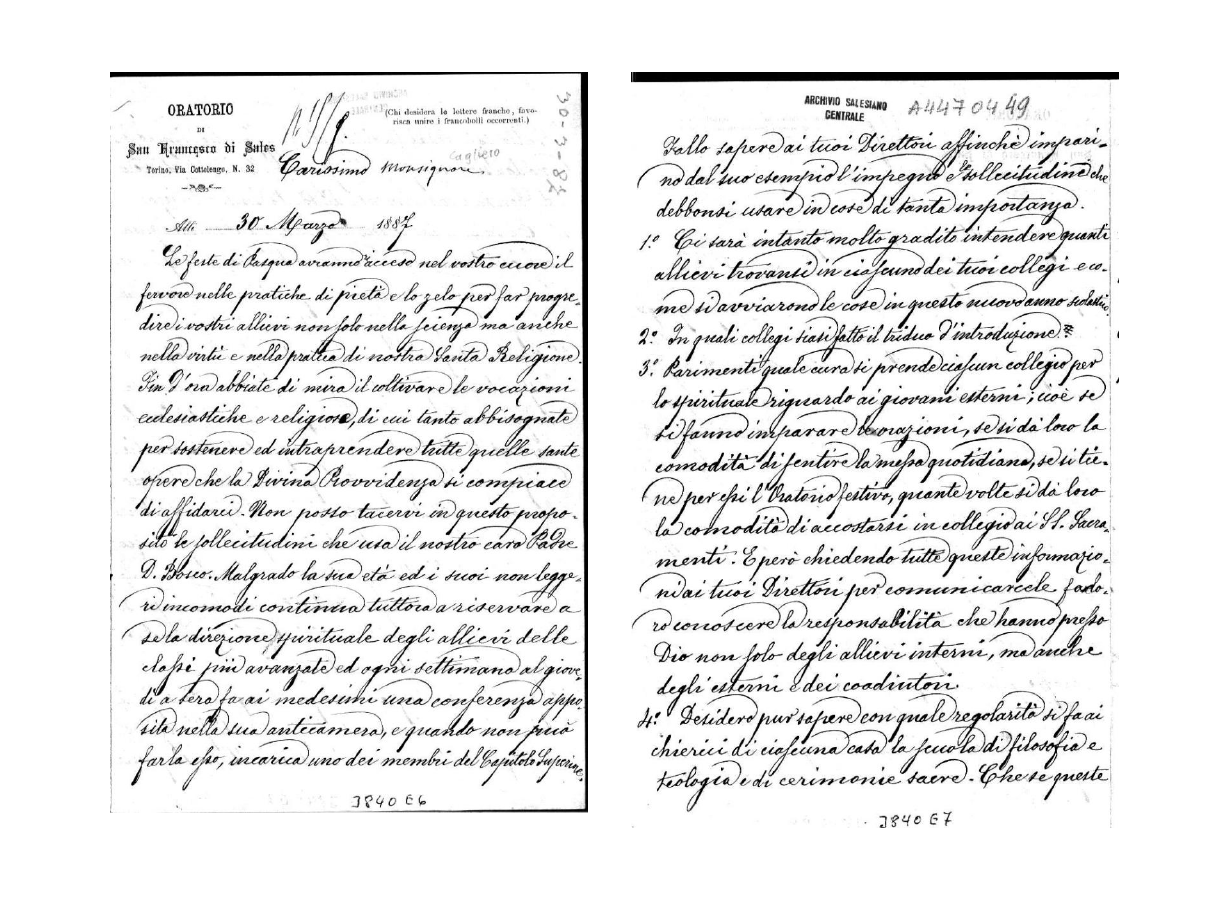 ORATORIO
DI
San Francesco di Sales
Torino, Via Cottolengo, N. 32
(Chi desidera le lettere franche, favo-
risca unire i francobolli occorrenti.)
30-3-87
Cagliero
Carissimo Monsignore
Addì 30 Marzo 1887
Le feste di Pasqua avranno acceso nel vostro cuore il
fervore nelle pratiche di pietà e lo zelo per far progre-
dire i vostri allievi non solo nella scienza ma anche
nella virtù e nella pratica di nostra Santa Religione.
Fin d'ora abbiate di mira il coltivare le vocazioni
ecclesiastiche e religiose, di cui tanto abbisognate
per sostenere ed intraprendere tutte quelle sante
opere che la Divina Provvidenza si compiace
di affidarci. Non posso tacervi in questo propo-
sito le sollecitudini che usa il nostro caro Padre
D. Bosco. Malgrado la sua età ed i suoi non legge-
ri incomodi continua tuttora a riservare a
se la direzione spirituale degli allievi delle
classi più avanzate ed ogni settimana al giove-
dì a sera fa ai medesimi una conferenza appo-
sita nella sua anticamera, e quando non può
farla esso, incarica uno dei membri del Capitolo Superiore.
J840 E6
ARCHIVIO SALESIANO
CENTRALE
A447 04 49
Fallo sapere ai tuoi Direttori affinchè impari-
no dal suo esempio l'impegno e sollecitudine che
debbonsi usare in cose di tanta importanza.
1.° Ci sarà intanto molto gradito intendere quanti
allievi trovansi in ciascuno dei tuoi collegi e co-
me si avviarono le cose in questo nuovo anno scolastico.
2.° In quali collegi siasi fatto il triduo d'introduzione
3.° Parimenti quale cura si prende ciascun collegio per
lo spirituale riguardo ai giovani esterni; cioè se
si fanno imparare le orazioni, se si dà loro la
comodità di sentire la messa quotidiana, se si tie-
ne per essi l'Oratorio festivo, quante volte si dà loro
la comodità di accostarsi in collegio ai SS. Sacra-
menti. E però chiedendo tutte queste informazio-
ni ai tuoi Direttori per comunicarcele fa lo-
ro conoscere la responsabilità che hanno presso
Dio non solo degli allievi interni, ma anche
degli esterni e dei coadiutori
4.° Desidero pur sapere con quale regolarità si fa ai
chierici di ciascuna casa la scuola di filosofia e
teologia e di cerimonie sacre. Che se queste
J840 E7